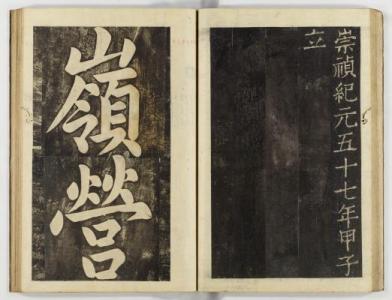 崇禎紀元五十七年甲子
立
嶺營